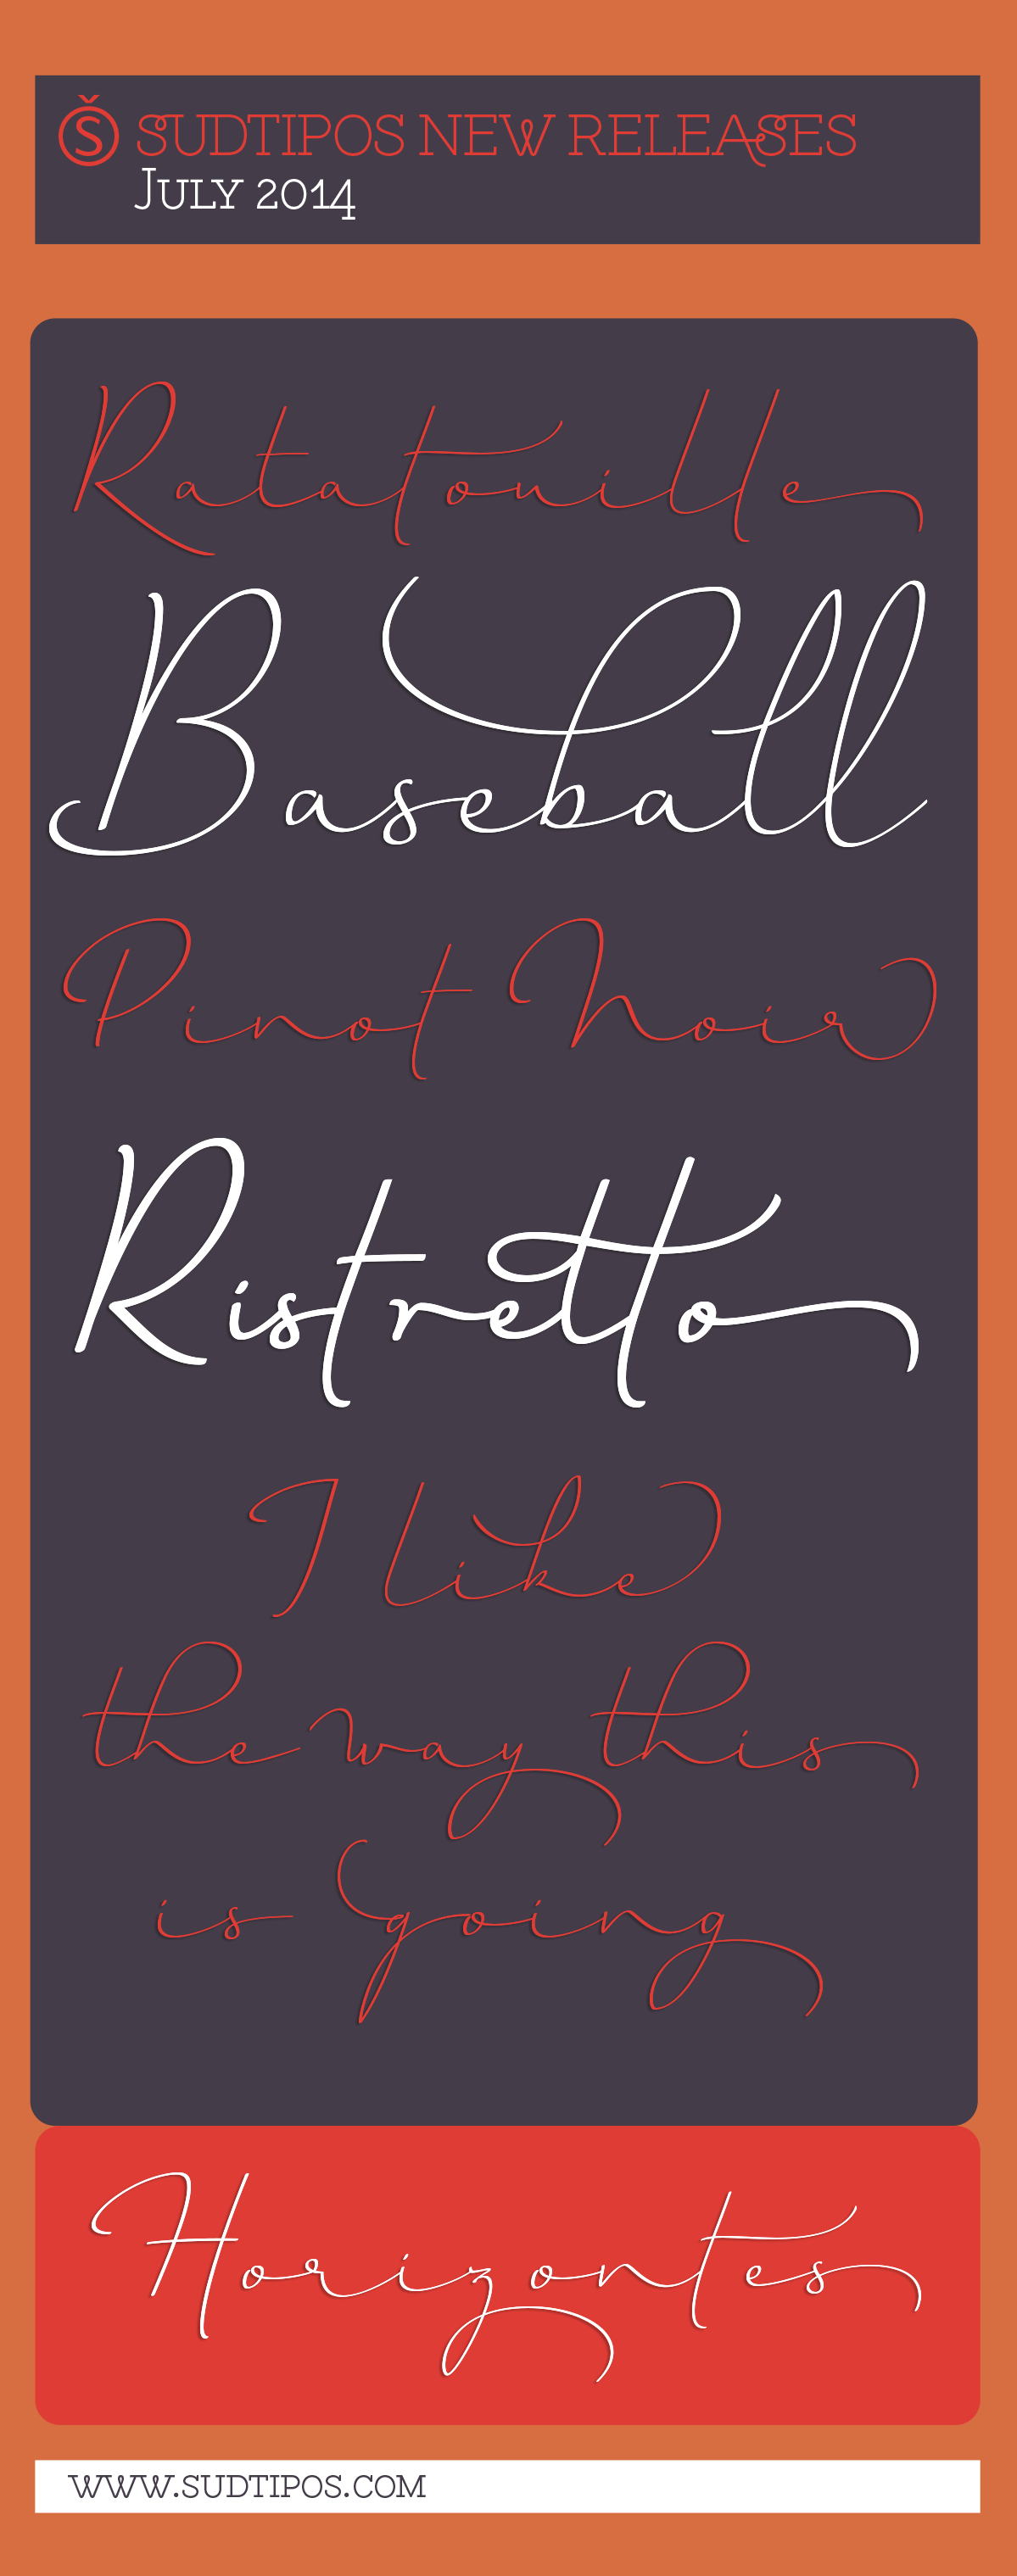 Š SUDTIPOS NEW RELEASES
JULY 2014
Ratatouille
Baseball
Pinot Noir
Ristretto
I like
the way this
is going
Horizontes
WWW.SUDTIPOS.COM